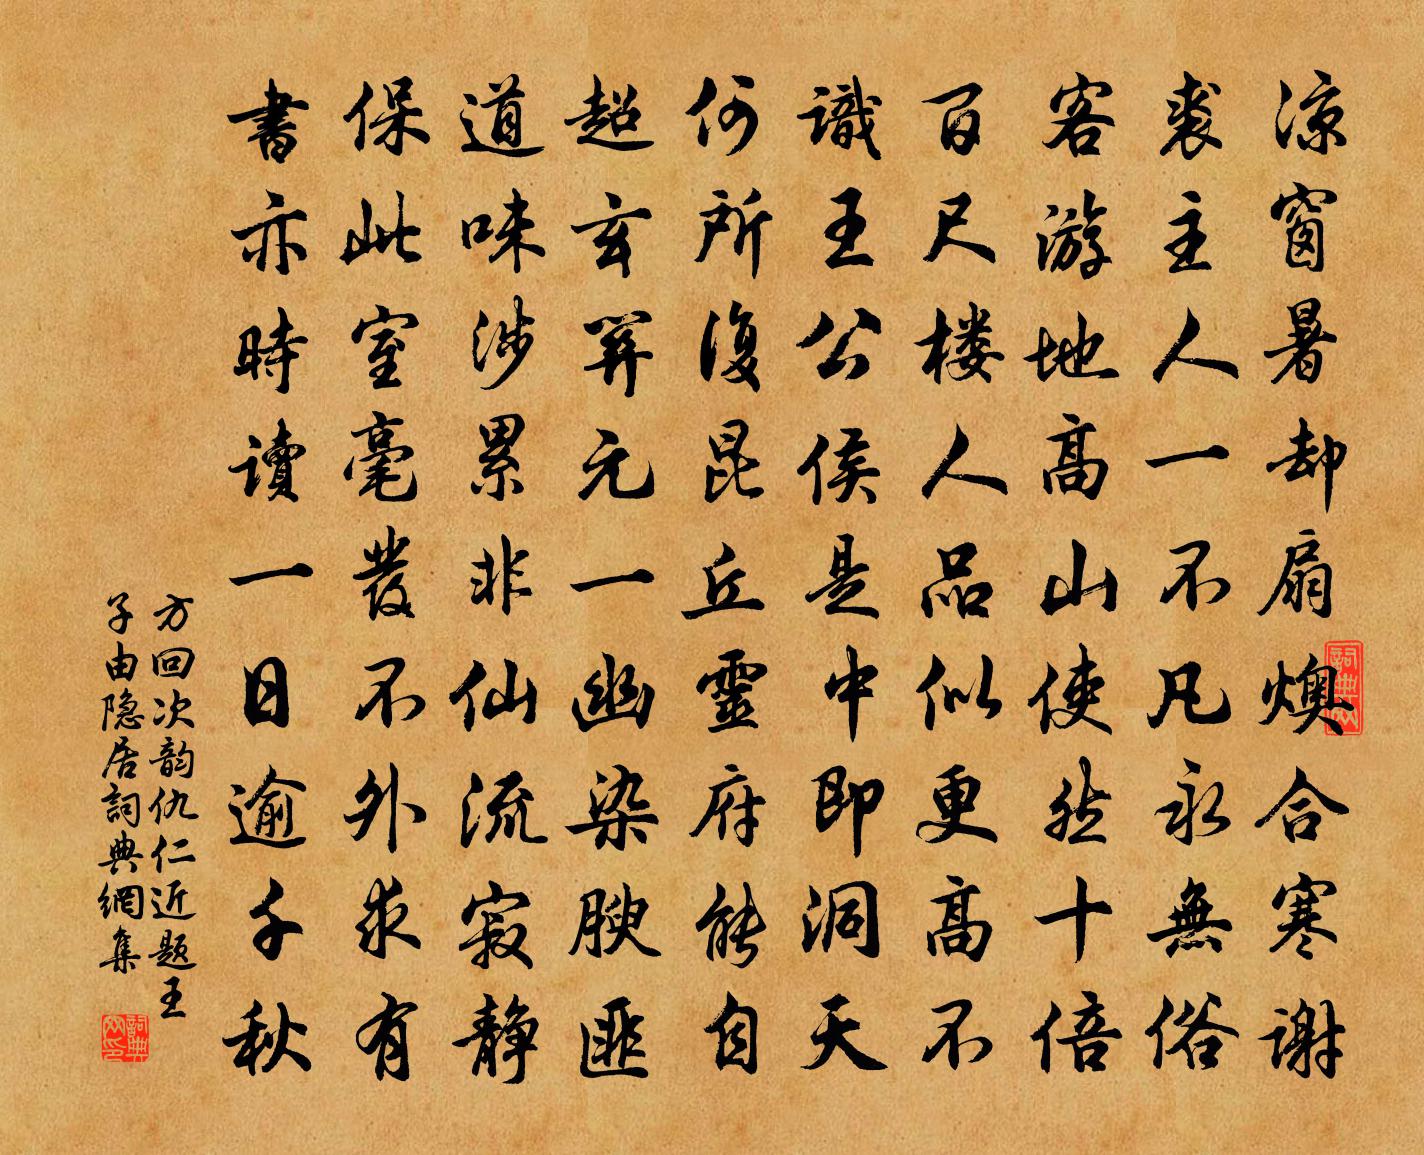 涼窗暑却扇燠合寒謝
裘主人一不凡永無俗
客游地高山使然十倍
百尺楼人品似更高不
識王公侯是中即洞天
何所復昆丘靈府能自
超玄關元一幽染腴匪
道味涉累非仙流寂静
保此室毫發不外求有
書亦時讀一日逾千秋
方回次韵仇仁近题王
子由隐居詞典網集